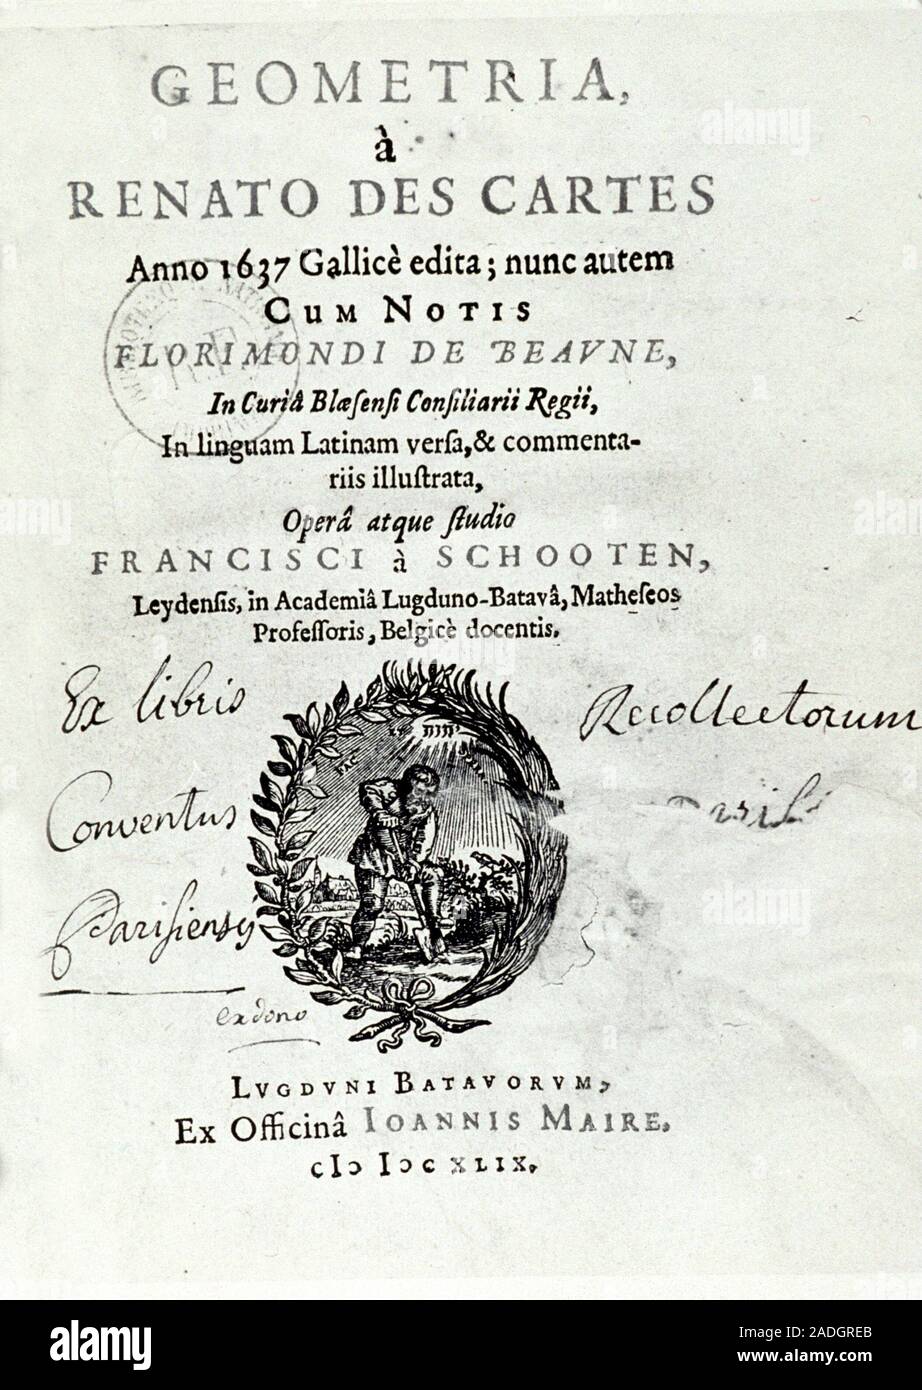 GEOMETRIA,
à
RENATO DES CARTES
Anno 1637 Gallicè edita; nunc autem
CUM NOTIS
FLORIMONDI DE BEAVNE,
In Curiâ Blæſenſi Conſiliarii Regii,
In linguam Latinam verſa, & commenta-
riis illuſtrata,
Operâ atque ſtudio
FRANCISCI à SCHOOTEN,
Leydenſis, in Academiâ Lugduno-Batavâ, Matheſeos
Profeſſoris, Belgicè docentis.
Ex libris Recollectorum
Conventus
Parisiensis
ex dono
FAC
LVGDVNI BATAVORVM,
Ex Officinâ IOANNIS MAIRE.
cIɔ Iɔc XLIX.
alamy
Image ID: 2ADGREB
www.alamy.com